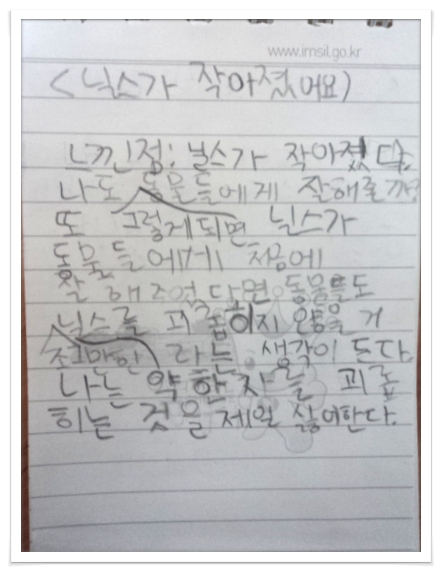 www.imsil.go.kr
<닐스가 작아졌어요>
느낀점: 닐스가 작아졌다.
나도 동물들에게 잘해줄까?
또 그렇게되면 닐스가
동물들에게 처음에
잘 해주었다면 동물들도
닐스를 괴롭히지 않을 거
조그만한 라는 생각이 든다.
나는 약한자를 괴롭
히는 것을 제일 싫어한다.